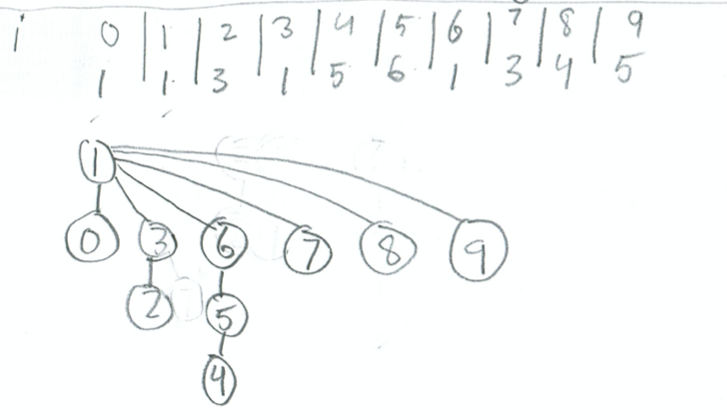 i 0 | 1 | 2 | 3 | 4 | 5 | 6 | 7 | 8 | 9
1 | 1 | 3 | 1 | 5 | 6 | 1 | 3 | 4 | 5
1
0 3 6 7 8 9
2 5
4